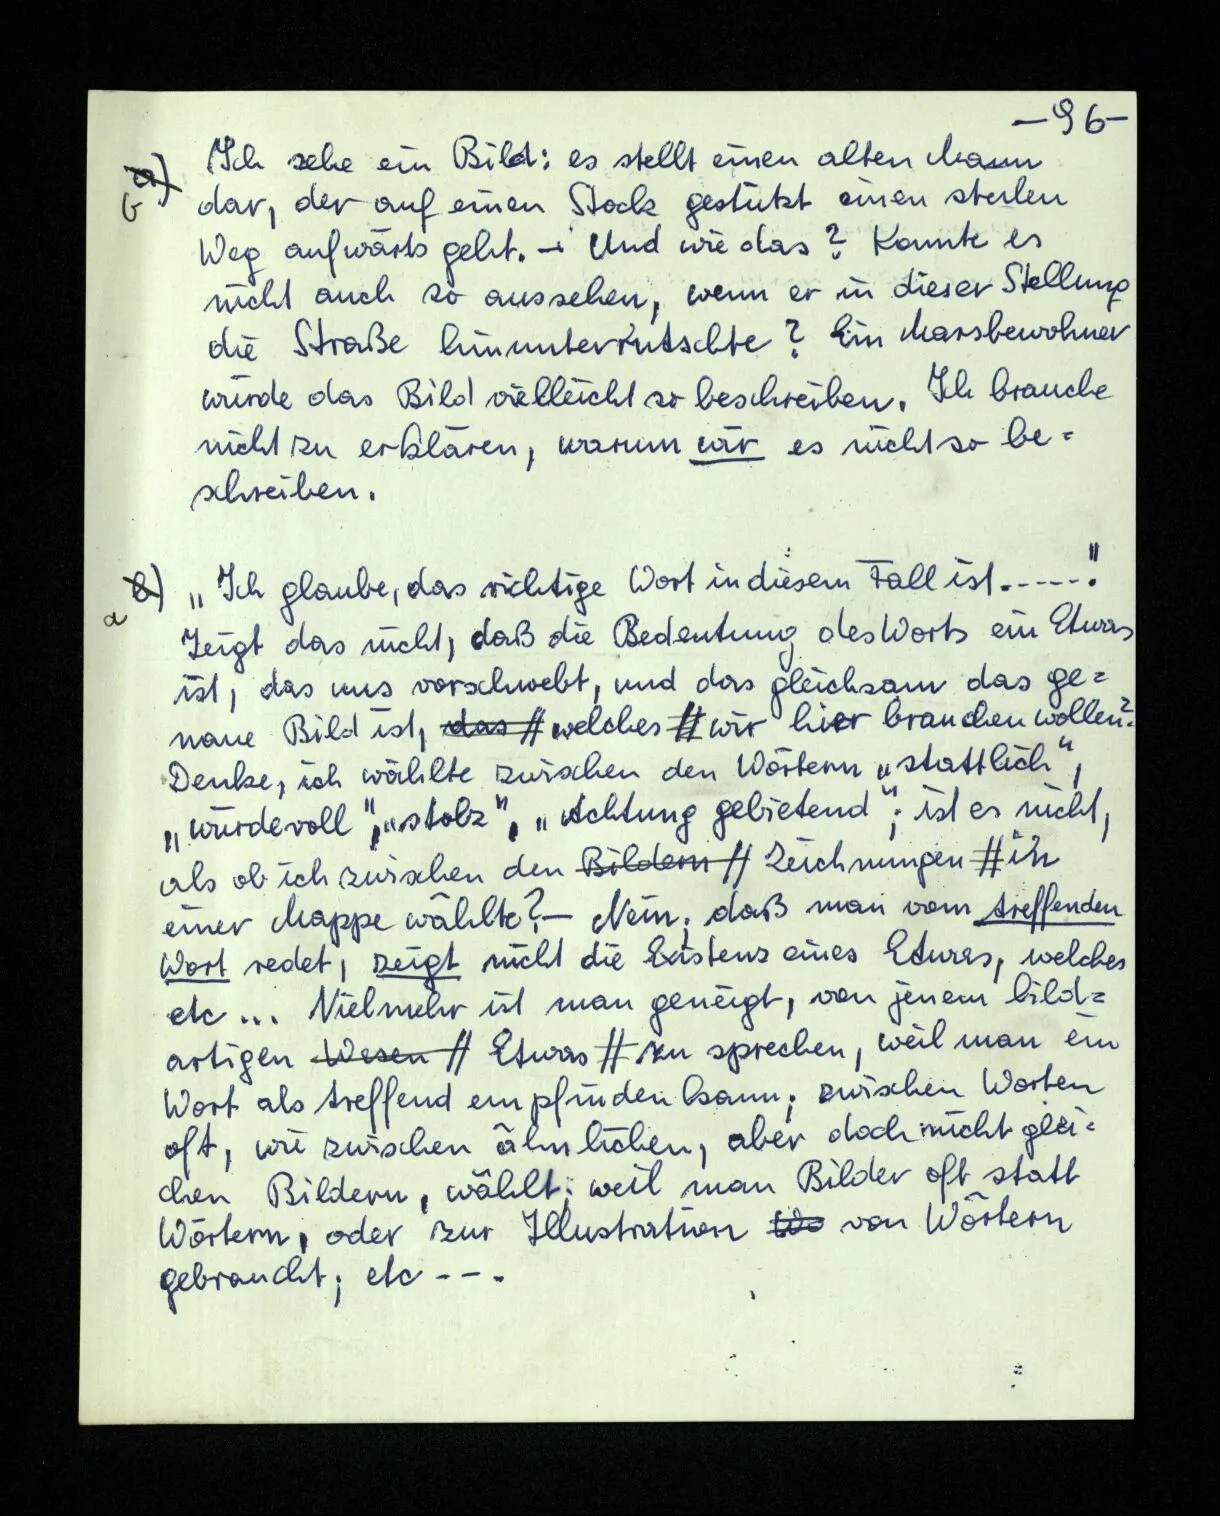 —96—
a) Ich sehe ein Bild: es stellt einen alten Mann
b dar, der auf einen Stock gestützt einen steilen
Weg aufwärts geht. — Und wie das? Konnte es
nicht auch so aussehen, wenn er in dieser Stellung
die Straße hinunterrutschte? Ein Marsbewohner
würde das Bild vielleicht so beschreiben. Ich brauche
nicht zu erklären, warum wir es nicht so be=
schreiben.
b) „Ich glaube, das richtige Wort in diesem Fall ist.-----."
a
Zeigt das nicht, daß die Bedeutung des Worts ein Etwas
ist, das uns vorschwebt, und das gleichsam das ge=
naue Bild ist, das // welches // wir hier brauchen wollen?
Denke, ich wählte zwischen den Wörtern „stattlich",
„würdevoll", „stolz", „Achtung gebietend"; ist es nicht,
als ob ich zwischen den Bildern // Zeichnungen // in
einer Mappe wählte? — Nein; daß man vom treffenden
Wort redet, zeigt nicht die Existenz eines Etwas, welches
etc ... Vielmehr ist man geneigt, von jenem bild=
artigen Wesen // Etwas // zu sprechen, weil man ein
Wort als treffend empfinden kann; zwischen Worten
oft, wie zwischen ähnlichen, aber doch nicht glei=
chen Bildern, wählt; weil man Bilder oft statt
Wörtern, oder zur Illustration Wo von Wörtern
gebraucht; etc ---.